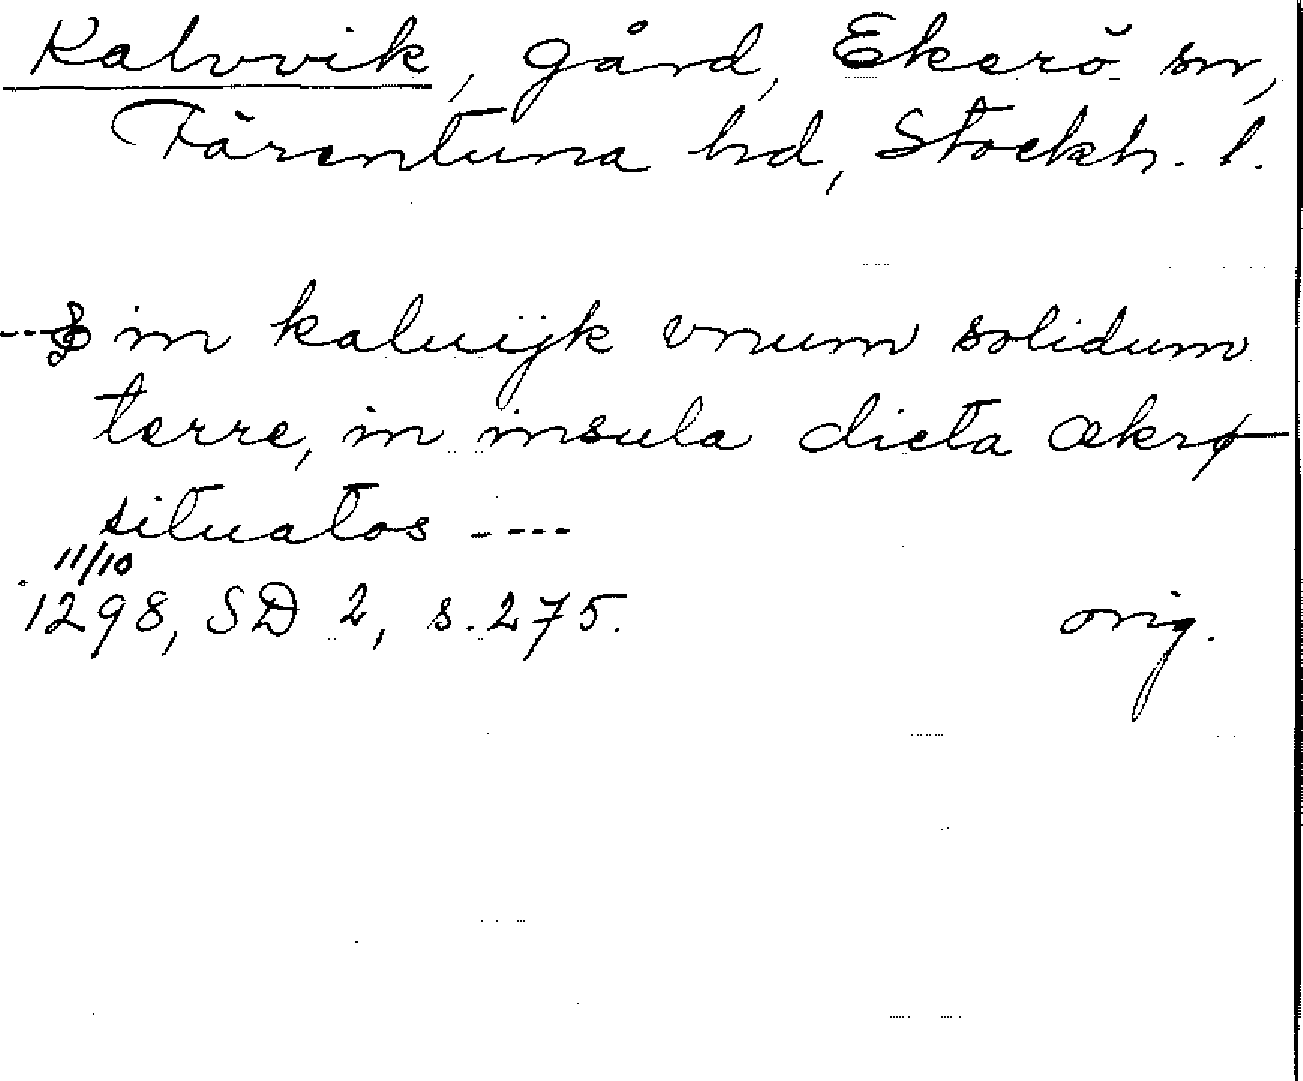 Kalvvik, gård, Ekerö sn,
Färentuna hd, Stockh. l.
--- & in kaluijk vnum solidum
terre, in insula dicta ækrø
situatos ----
11/10
1298, SD 2, s. 275. orig.